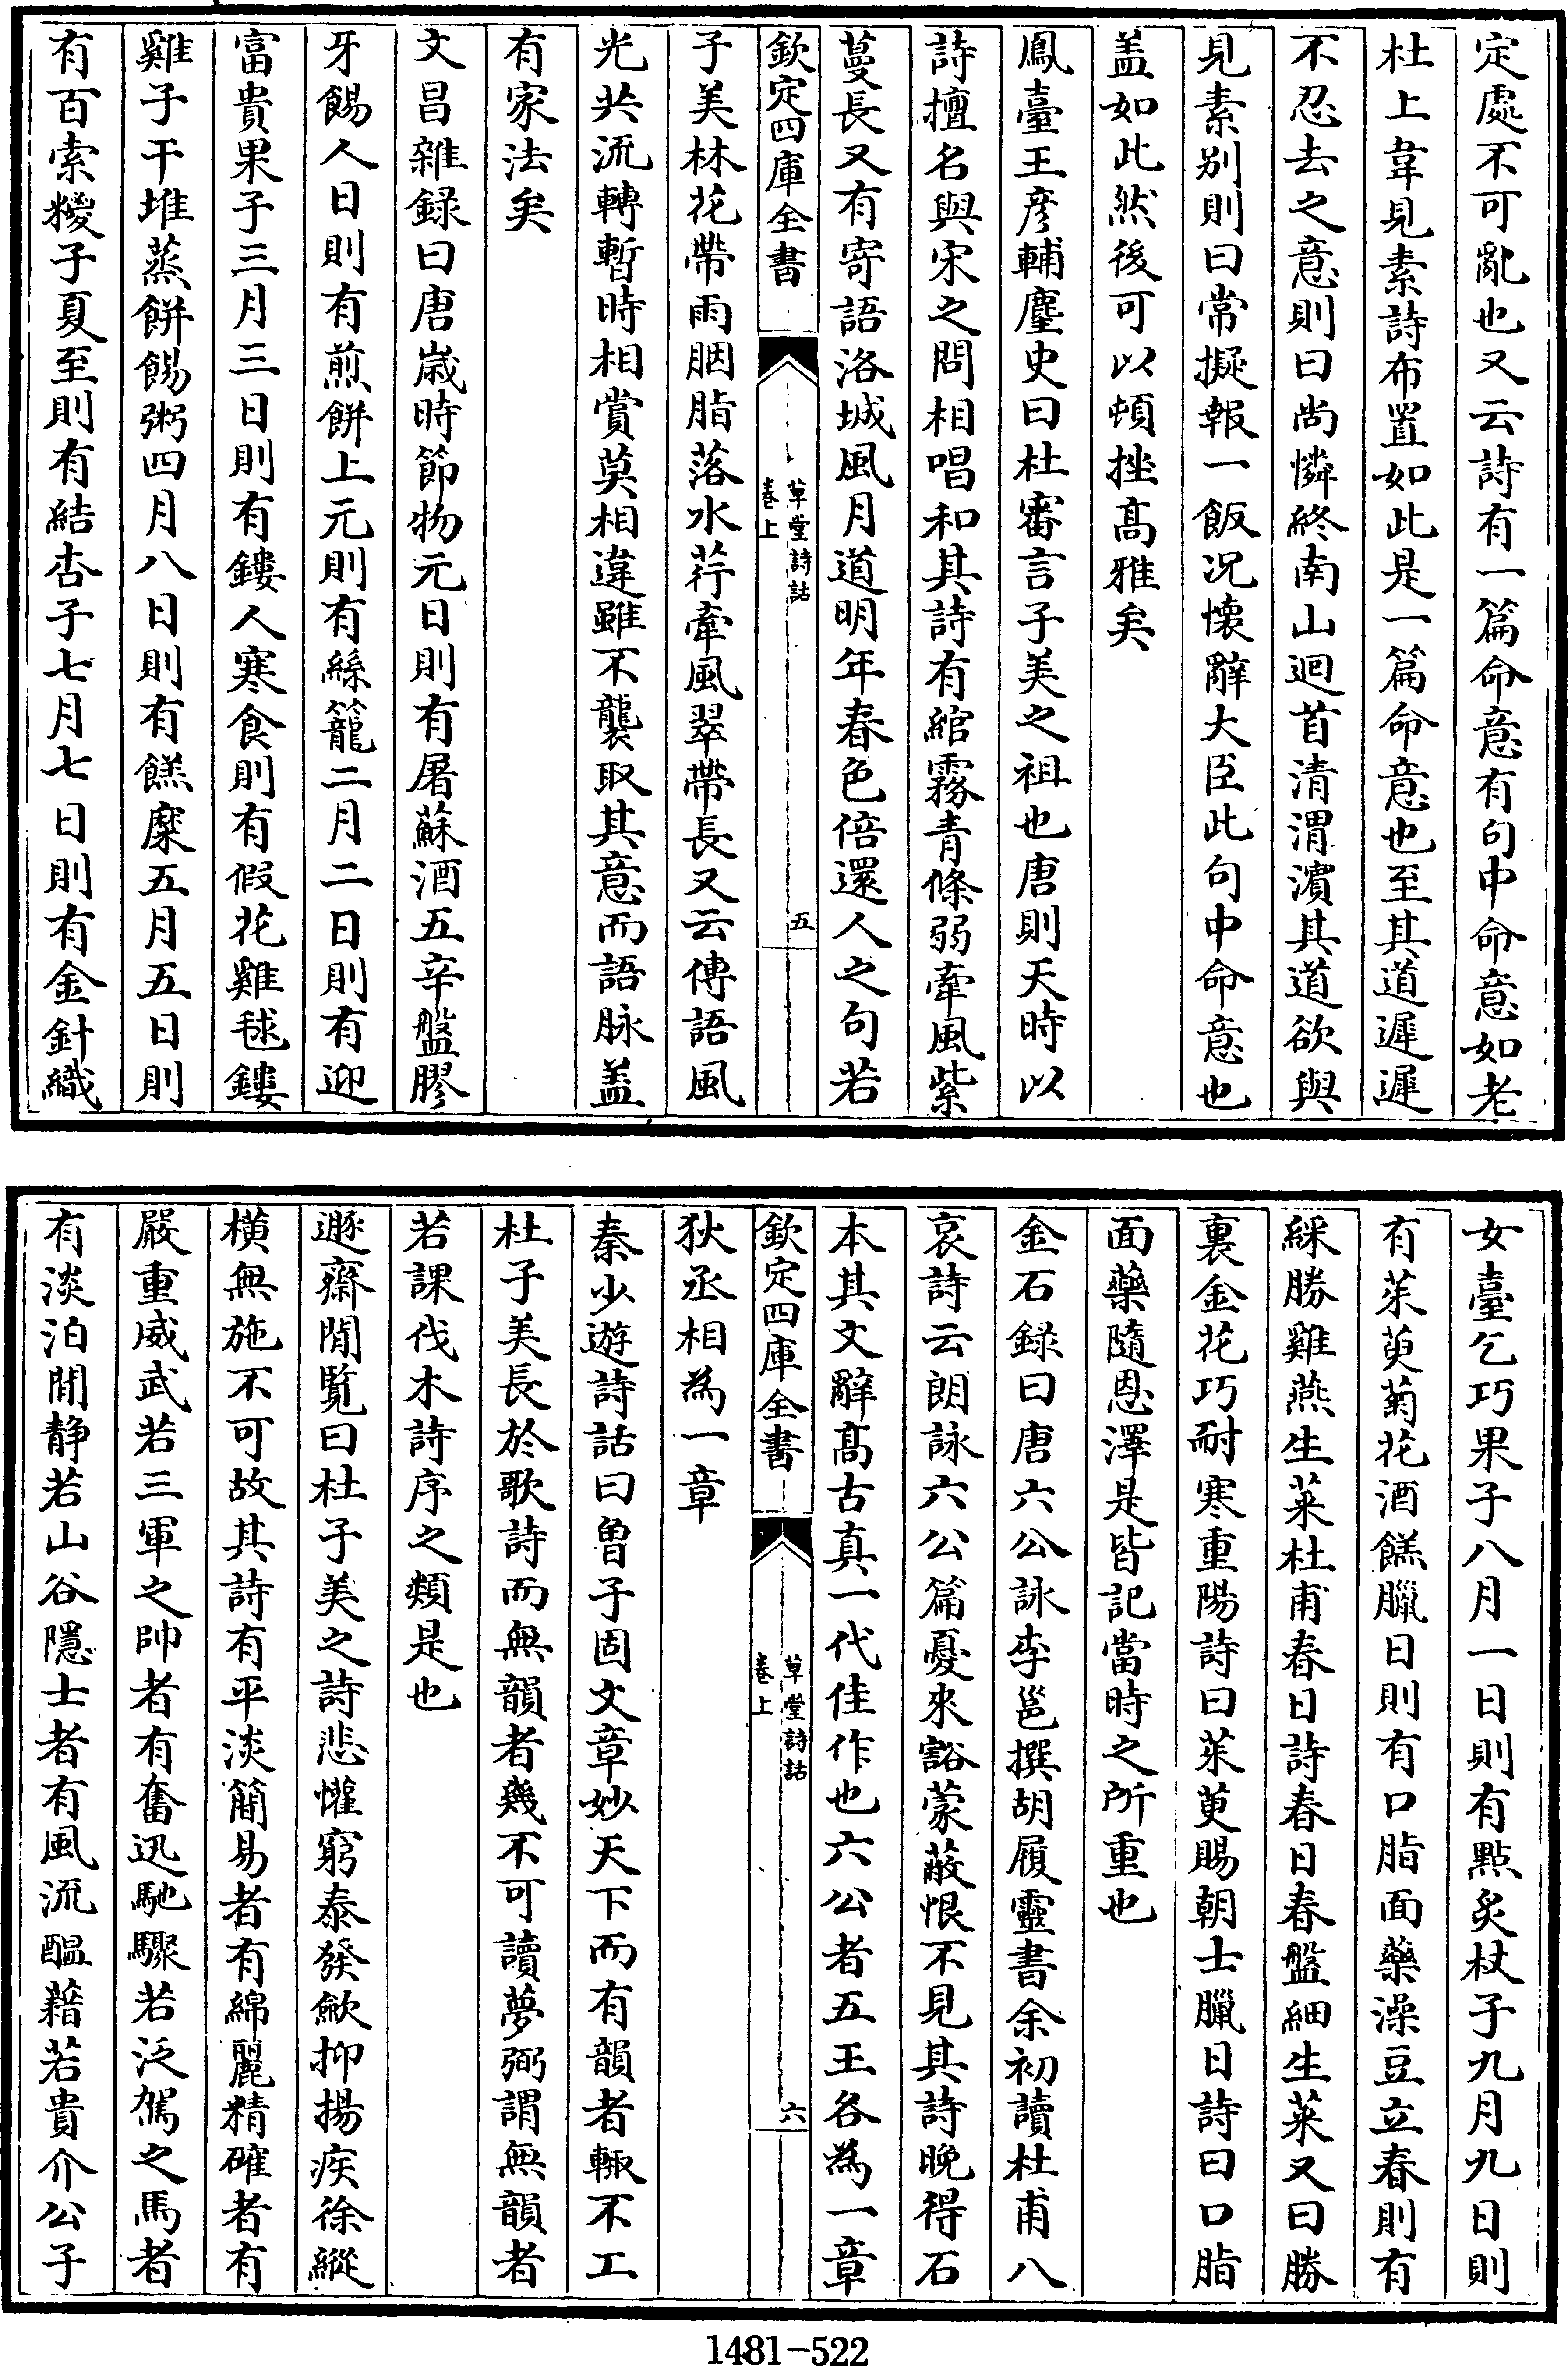 定處不可亂也又云詩有一篇命意有句中命意如老
杜上韋見素詩布置如此是一篇命意也至其道遲遲
不忍去之意則曰尚憐終南山迴首清渭濱其道欲與
見素别則曰常擬報一飯况懷辭大臣此句中命意也
盖如此然後可以頓挫髙雅矣
鳳臺王彦輔麈史曰杜審言子美之祖也唐則天時以
詩擅名與宋之問相唱和其詩有綰霧青條弱牽風紫
蔓長又有寄語洛城風月道明年春色倍還人之句若
欽定四庫全書
草堂詩話
卷上
五
子美林花帶雨胭脂落水荇牽風翠帶長又云傳語風
光共流轉暫時相賞莫相違雖不襲取其意而語脉盖
有家法矣
文昌雜録曰唐嵗時節物元日則有屠蘇酒五辛盤膠
牙餳人日則有煎餅上元則有絲籠二月二日則有迎
富貴果子三月三日則有鏤人寒食則有假花雞毬鏤
雞子干堆蒸餅餳粥四月八日則有餻糜五月五日則
有百索糉子夏至則有結杏子七月七日則有金針織
女臺乞巧果子八月一日則有點炙杖子九月九日則
有茱萸菊花酒餻臘日則有口脂面藥澡豆立春則有
綵勝雞燕生菜杜甫春日詩春日春盤細生菜又曰勝
裏金花巧耐寒重陽詩曰茱萸賜朝士臘日詩曰口脂
面藥隨恩澤是皆記當時之所重也
金石録曰唐六公詠李邕撰胡履靈書余初讀杜甫八
哀詩云朗詠六公篇憂來豁蒙蔽恨不見其詩晚得石
本其文辭髙古真一代佳作也六公者五王各為一章
欽定四庫全書
草堂詩話
卷上
六
狄丞相為一章
秦少遊詩話曰曾子固文章妙天下而有韻者輙不工
杜子美長於歌詩而無韻者幾不可讀夢弼謂無韻者
若課伐木詩序之類是也
遯齋閒覽曰杜子美之詩悲懽窮泰發歛抑揚疾徐縱
橫無施不可故其詩有平淡簡易者有綿麗精確者有
嚴重威武若三軍之帥者有奮迅馳驟若泛駕之馬者
有淡泊閒静若山谷隱士者有風流醖藉若貴介公子
1481-522